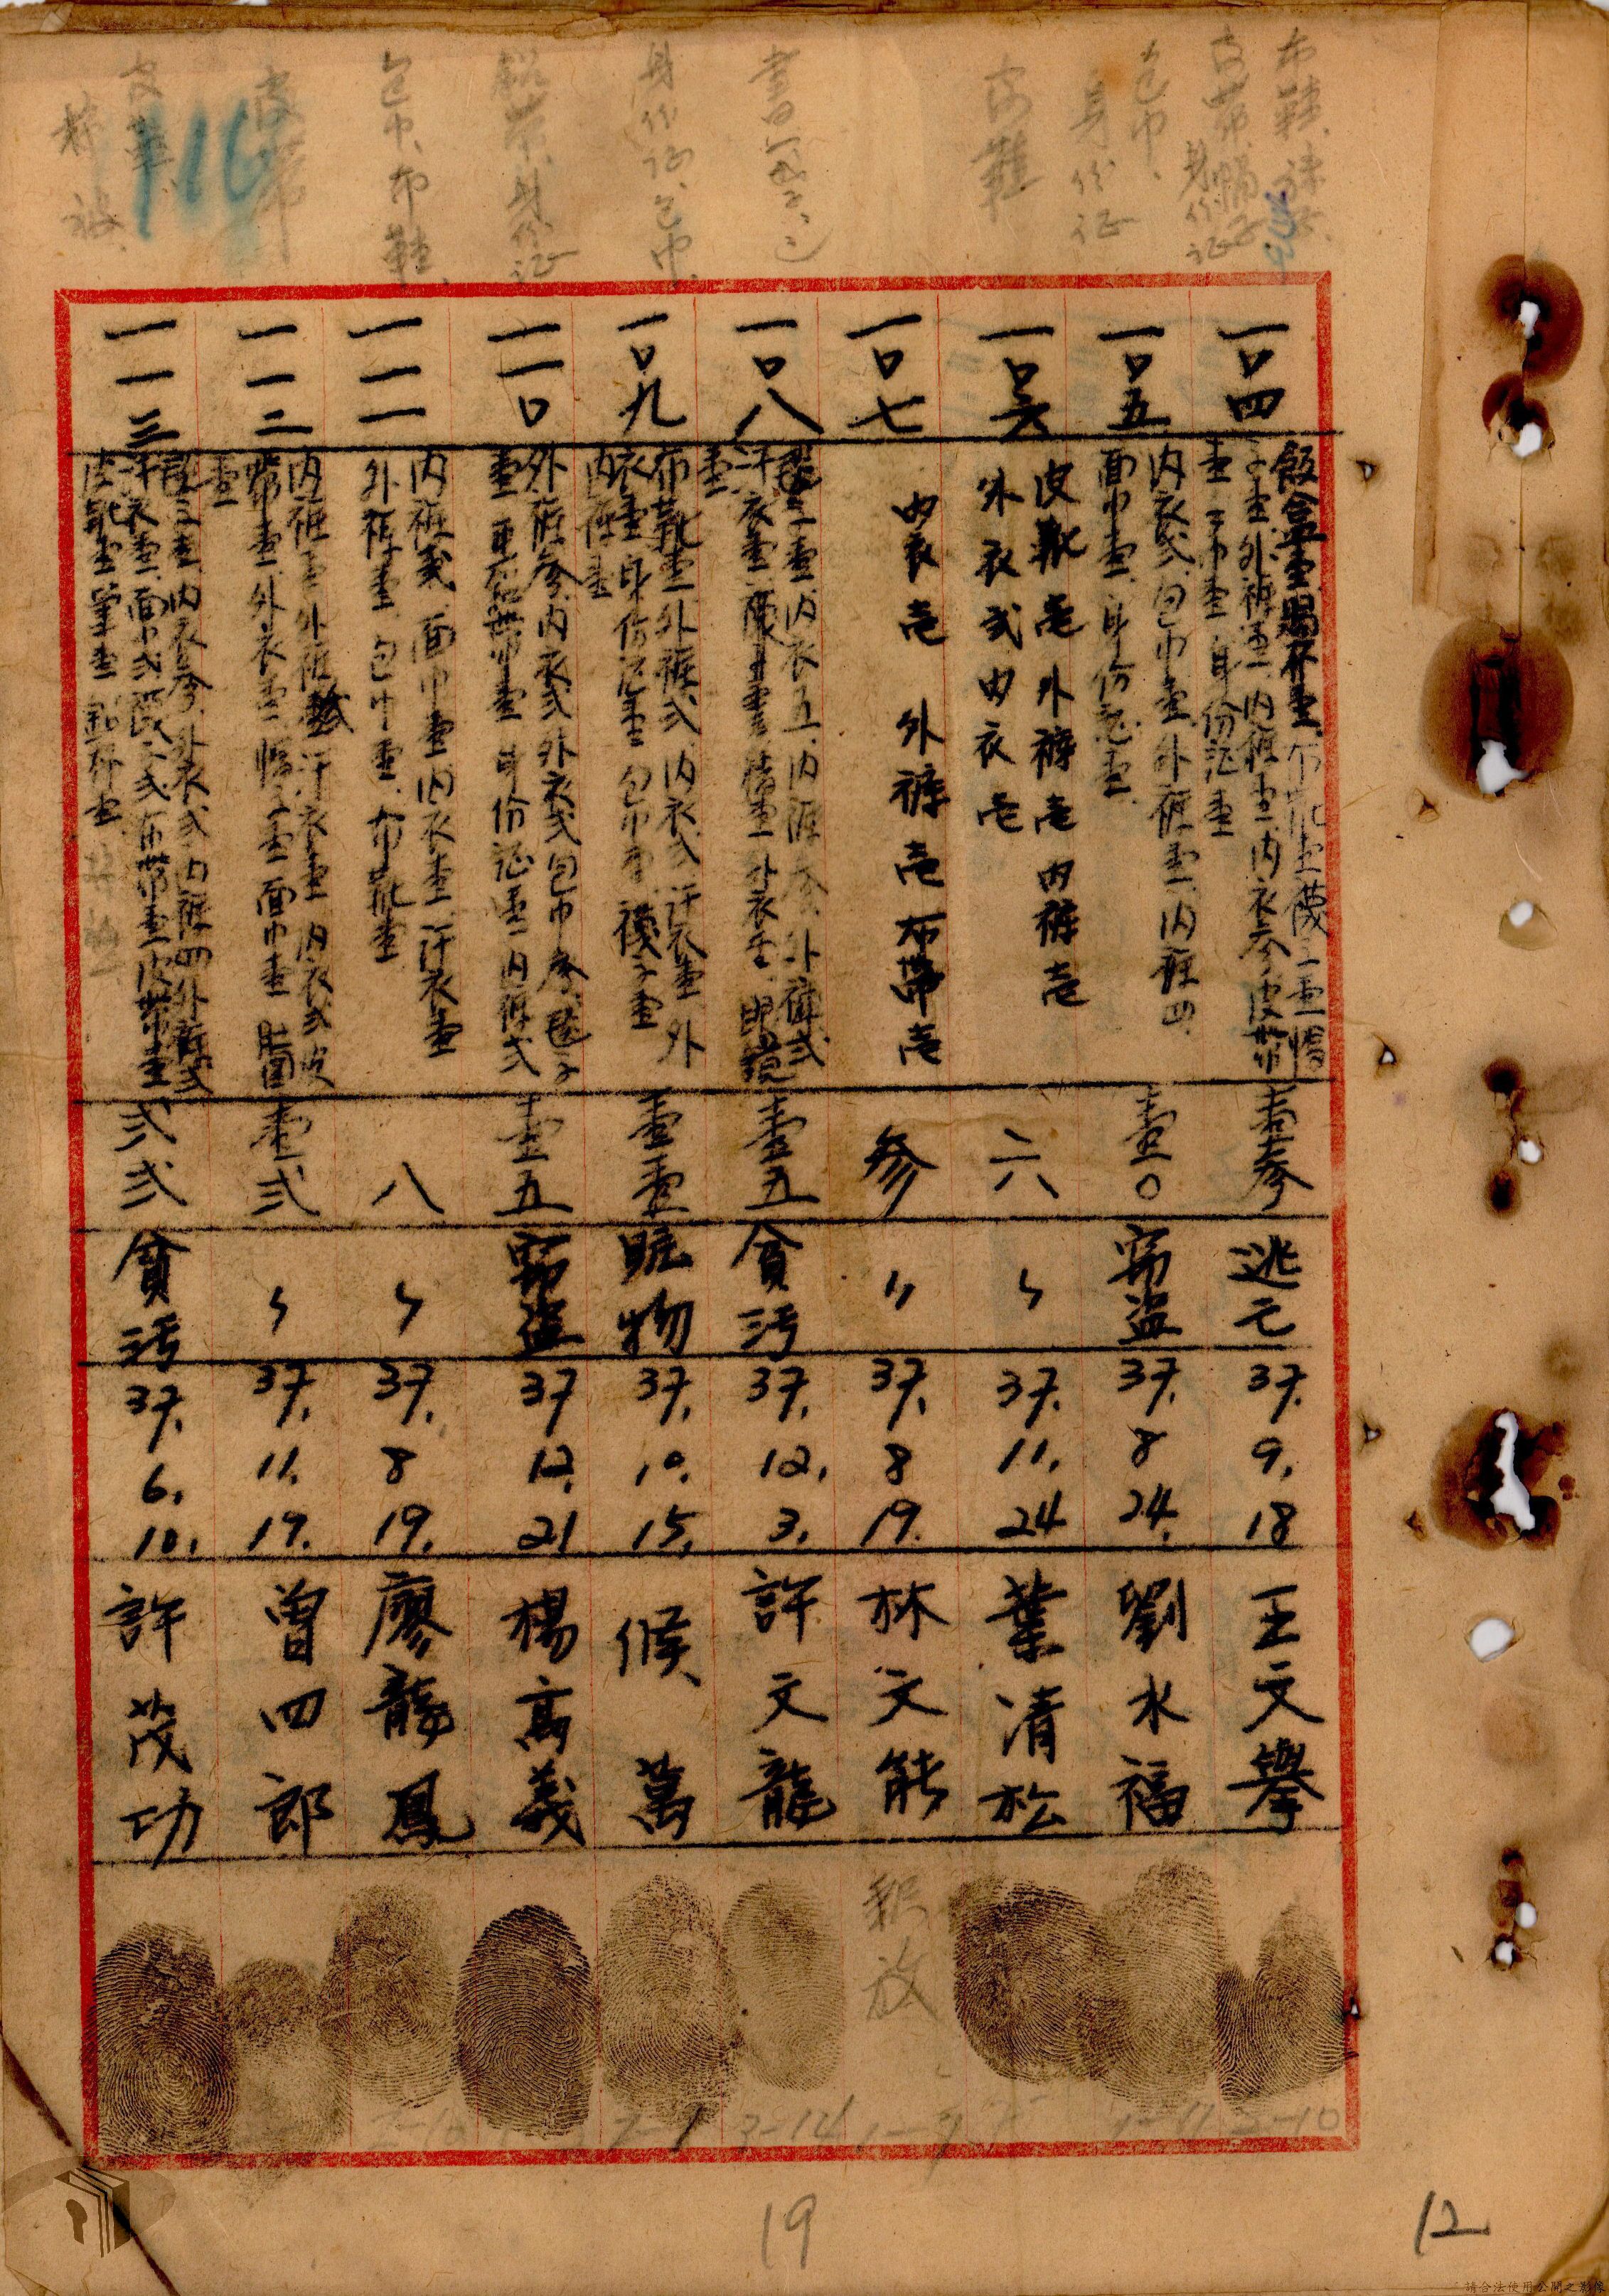 布鞋、襪子、
皮帶、帽子
身份证
包巾、
身份证
皮鞋
身份证、包巾、
鋁帶、身份证
包巾、布鞋、
皮帶
皮革、
棉被、
116
一〇四
飯盒壹、賜杯壹、布靴壹、襪子壹、帽
子壹、外褲壹、內褲壹、內衣參、皮帶
壹、手巾壹、身份证壹
壹參
逃亡
37. 9. 18
王文舉
一〇五
內衣弍、包巾壹、外褲壹、內褲四、
面巾壹、身份证壹、
壹〇
竊盜
37. 8 24.
劉水福
一〇六
皮靴壱外褲壱内褲壱
外衣弍内衣壱
六
〃
37. 11. 24
葉清松
一〇七
内衣壱 外褲壱布帶壱
參
〃
37. 8 19.
林文能
一〇八
毯子壹、內衣五、內褲參、外褲弍
汗衣壹、外衣壹、眼鏡
壹
壹五
貪污
37. 12. 3.
許文龍
一〇九
布靴壹、外褲弍、內衣弍、汗衣壹、外
衣壹、身份证壹、包巾壹、襪子壹
內褲壹
壹壹
賍物
37. 10. 15.
候萬
一一〇
外褲參、內衣弍、外衣弍、包巾參、毯子
壹、身份证壹、內褲弍
壹五
竊盜
37 12. 21
楊高義
一一一
內褲弍、面巾壹、內衣壹、汗衣壹
外褲壹、包巾壹、布靴壹
八
〃
37. 8 19.
廖龍鳳
一一二
內褲壹、外褲弍、汗衣壹、內衣弍、皮
帶壹、外衣壹、帽子壹、面巾壹
壹
壹弍
〃
37. 11. 19.
曾四郎
一一三
毯子壹、內衣參、外衣弍、內褲四、外褲弍
汗衣壹、面巾弍、襪子弍、布帶壹、皮帶壹
皮靴壹、筆壹
弍弍
貪污
37. 6. 10.
許茂功
釋放
2-10
3-14
7-1
19
12
請合法使用公開之影像